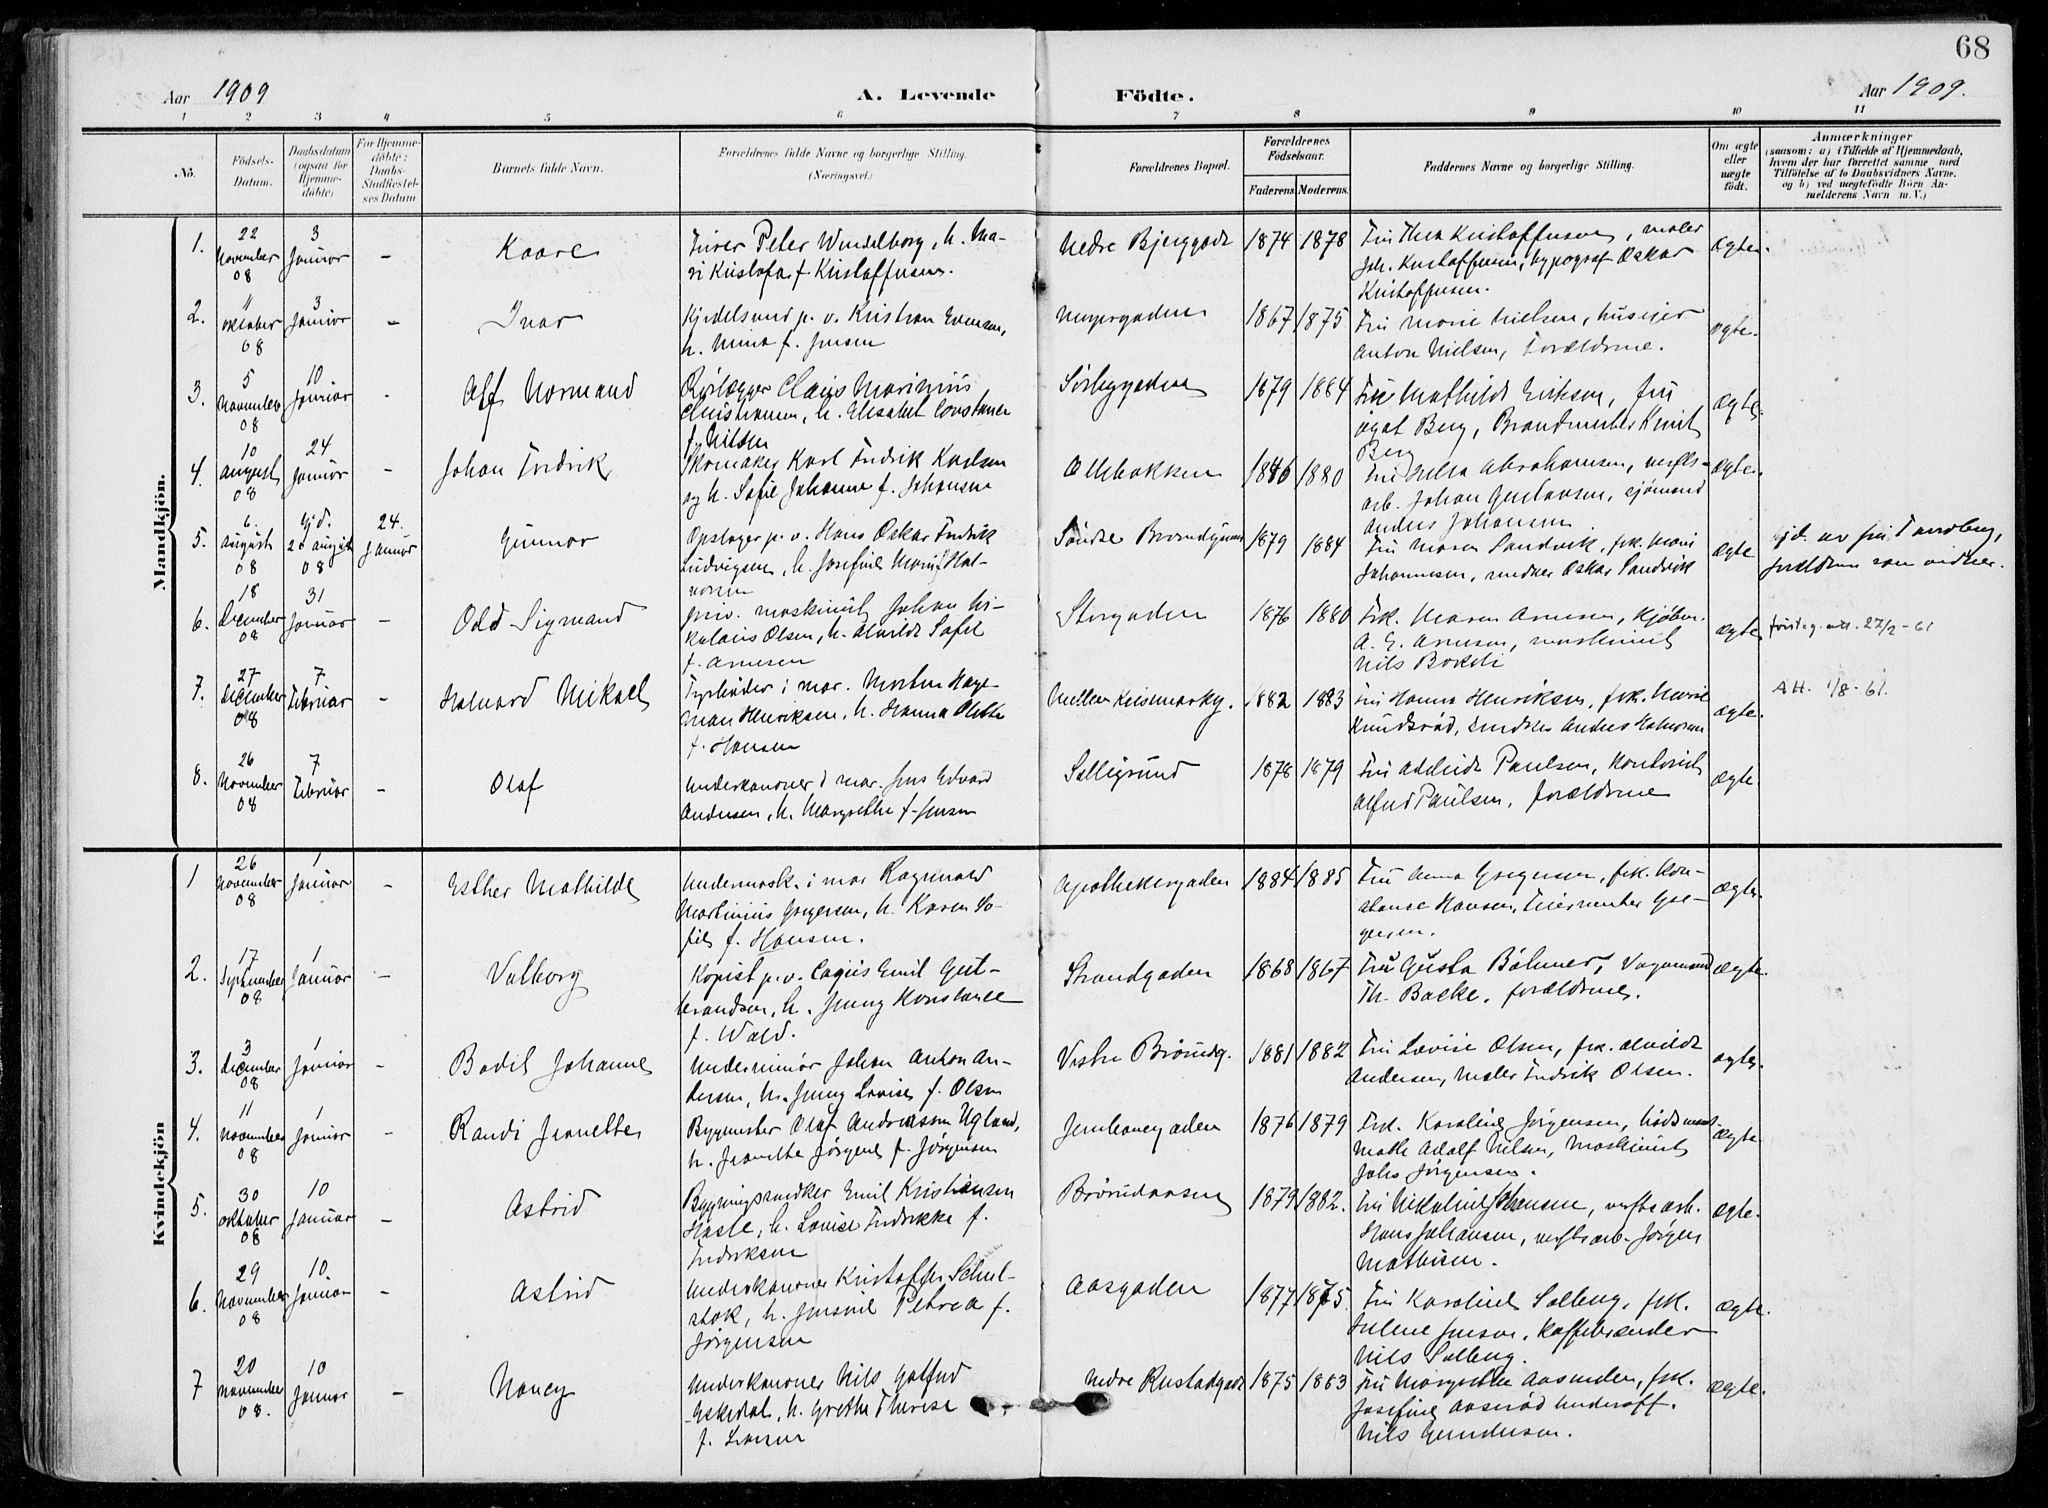 68
Aar 1909
A. Levende
Födte.
Aar 1909.
1 2 3 4 5 6 7 8 9 10 11
No.
Födsels-
Datum.
Daabsdatum
(ogsaa for
Hjemme-
döbte)
For Hjemme-
döbte:
Daabs-
Stadfæstel-
ses Datum
Barnets fulde Navn.
Forældrenes fulde Navne og borgerlige Stilling.
(Næringsvei.)
Forældrenes Bopæl.
Forældrenes
Födselsaar.
Faderens.
Moderens.
Faddernes Navne og borgerlige Stilling.
Om ægte
eller
uægte
født.
Anmærkninger
(saasom: a) i Tilfælde af Hjemmedaab,
hvem der har forrettet samme, med
Tilföielse af to Daabsvidners Navne,
og b) ved uægtefödte Börn An-
melderens Navn m. V.)
Mandkjön.
1.
22
November
08
3
Januar
-
Kaare
Peter Wendelborg, h. Ma-
ri Kristofa f. Kristoffersen.
Nedre Bjerggade
1874 1878
Fru Thea Kristoffersen, maler
Joh. Kristoffersen, typograf Oskar
Kristoffersen.
ægte.
2.
11
oktober
08
3
Januar
-
Ivar
Kjedelsmed p. v. Kristian Evensen,
h. Mina f. Jensen
1867 1875
Fru Marie Nielsen, husejer
Anton Nielsen, Forældrene.
ægte.
3.
5
November
08
10
Januar
-
Alf Normand
Rørlægger Claus Marinius
Christiansen, h. Elisabet Constance
f. Nilsen
1879 1884
Mathilde Eriksen, fru
Berg, Brandmester
Berg
ægte.
4.
10
august
08
24
Januar
-
Johan Fredrik
Skomaker Karl Fredrik Karlsen
og h. Sofie Johanne f. Johansen
Ollebakken
1880
Fru Abrahamsen, verfts-
arb. Johan Gustavsen, sjömand
Anders Johansen
ægte.
5.
6.
august
08
hjd.
august
08
24.
Januar
Gunnar
Opsager p. v. Hans Oskar Fredrik
Ludvigsen, h. Josefine Marie Hal-
vorsen
Søndre
1879 1884
Fru Maren Sandvik, frk. Marie
Johannesen, snedker Oskar Sandvik
ægte
hjd. av fru Tandberg,
forældrene som vidner.
6.
18
December
08
31
Januar
-
Odd Sigmund
priv. maskinist Johan Ni-
kolaus Olsen, h. Alvilde Sofie
f. Arnesen
Storgaden
1876 1880
Frk. Maren Arnesen, Kjöbm.
A. E. Arnesen, maskinist
Nils
ægte
27/2-61
7.
27
December
08
7
Februar
-
Halvard Mikael
Fyrbøder i mar. Morten Hage-
man Henriksen, h. Hanna Olette
f. Hansen
1882 1883
Fru Hanna Henriksen, frk. Marie
Knudsrød, snedker Anders Halvorsen
ægte.
A.H. 1/8-61.
8.
26
November
08
7
Februar
-
Olaf
Underkanoner i mar. Jens Edvard
Andersen, h. Margrethe f. Jensen
1878 1879
Fru Adeleide Paulsen, Kontorist
Alfred Paulsen, forældrene
ægte.
Kvindekjön
1
26
November
08
1
Januar
-
Esther Mathilde
Undermask. i mar Ragnvald
Martinius Gregersen, h. Karen So-
fie f. Hansen.
Apothekergaden
1884 1885
Fru Anna Gregersen, frk. Kon-
stanse Hansen, Gre-
gersen.
ægte.
2.
17
September
08
1
Januar
-
Valborg
Kopist p. v. Emil Gut-
brandsen, h. Jenny Konstance
f. Wold.
Strandgaden
1868 1867
Fru Gusta Böhmer, Vognmand
Th. Bakke, forældrene.
ægte.
3.
3
December
08
1
Januar
-
Bodil Johanne
Underminør Johan Anton An-
dersen, h. Jenny Lovise f. Olsen
Vestre
1881 1882
Fru Lovise Olsen, frk. Alvilde
Andersen, Maler Fredrik Olsen.
ægte.
4.
11
November
08
1
Januar
-
Randi Jeanette
Bygmester Olaf Andreassen Ugland,
h. Jeanette Jørgine f. Jørgensen
Jernbanegaden
1876 1879
Frk. Karoline Jörgensen, baadsmands-
math Adolf Nilsen, Maskinist
Johs Jörgensen.
ægte.
5.
30
oktober
08
10
Januar
-
Astrid
Bygningssnedker Emil Kristiansen
Hasle, h. Lovise Fredrikke f.
Fredriksen
1879 1882.
Fru Nikoline Johansen, verftsarb.
Hans Johansen, verftsarb. Jörgen
Mathisen.
ægte.
6.
29
November
08
10
Januar
-
Astrid
Underkanoner Kristoffer Schul-
stok, h. Petrea f.
Jörgensen
Aasgaden
1877
Fru Karoline Solberg, frk.
Helene Jensen, Kaffebrænder
Nils Solberg.
ægte.
7
20
November
08.
10
Januar
-
Nancy
Underkanoner Nils Galfred
Eskedal, h. Grethe Therese
f. Larsen
Nedre Rustadgade
1875 1883
Fru Margrethe Aasunden, frk.
Josefine Aaserød Underoff.
Nils Gundersen.
ægte.